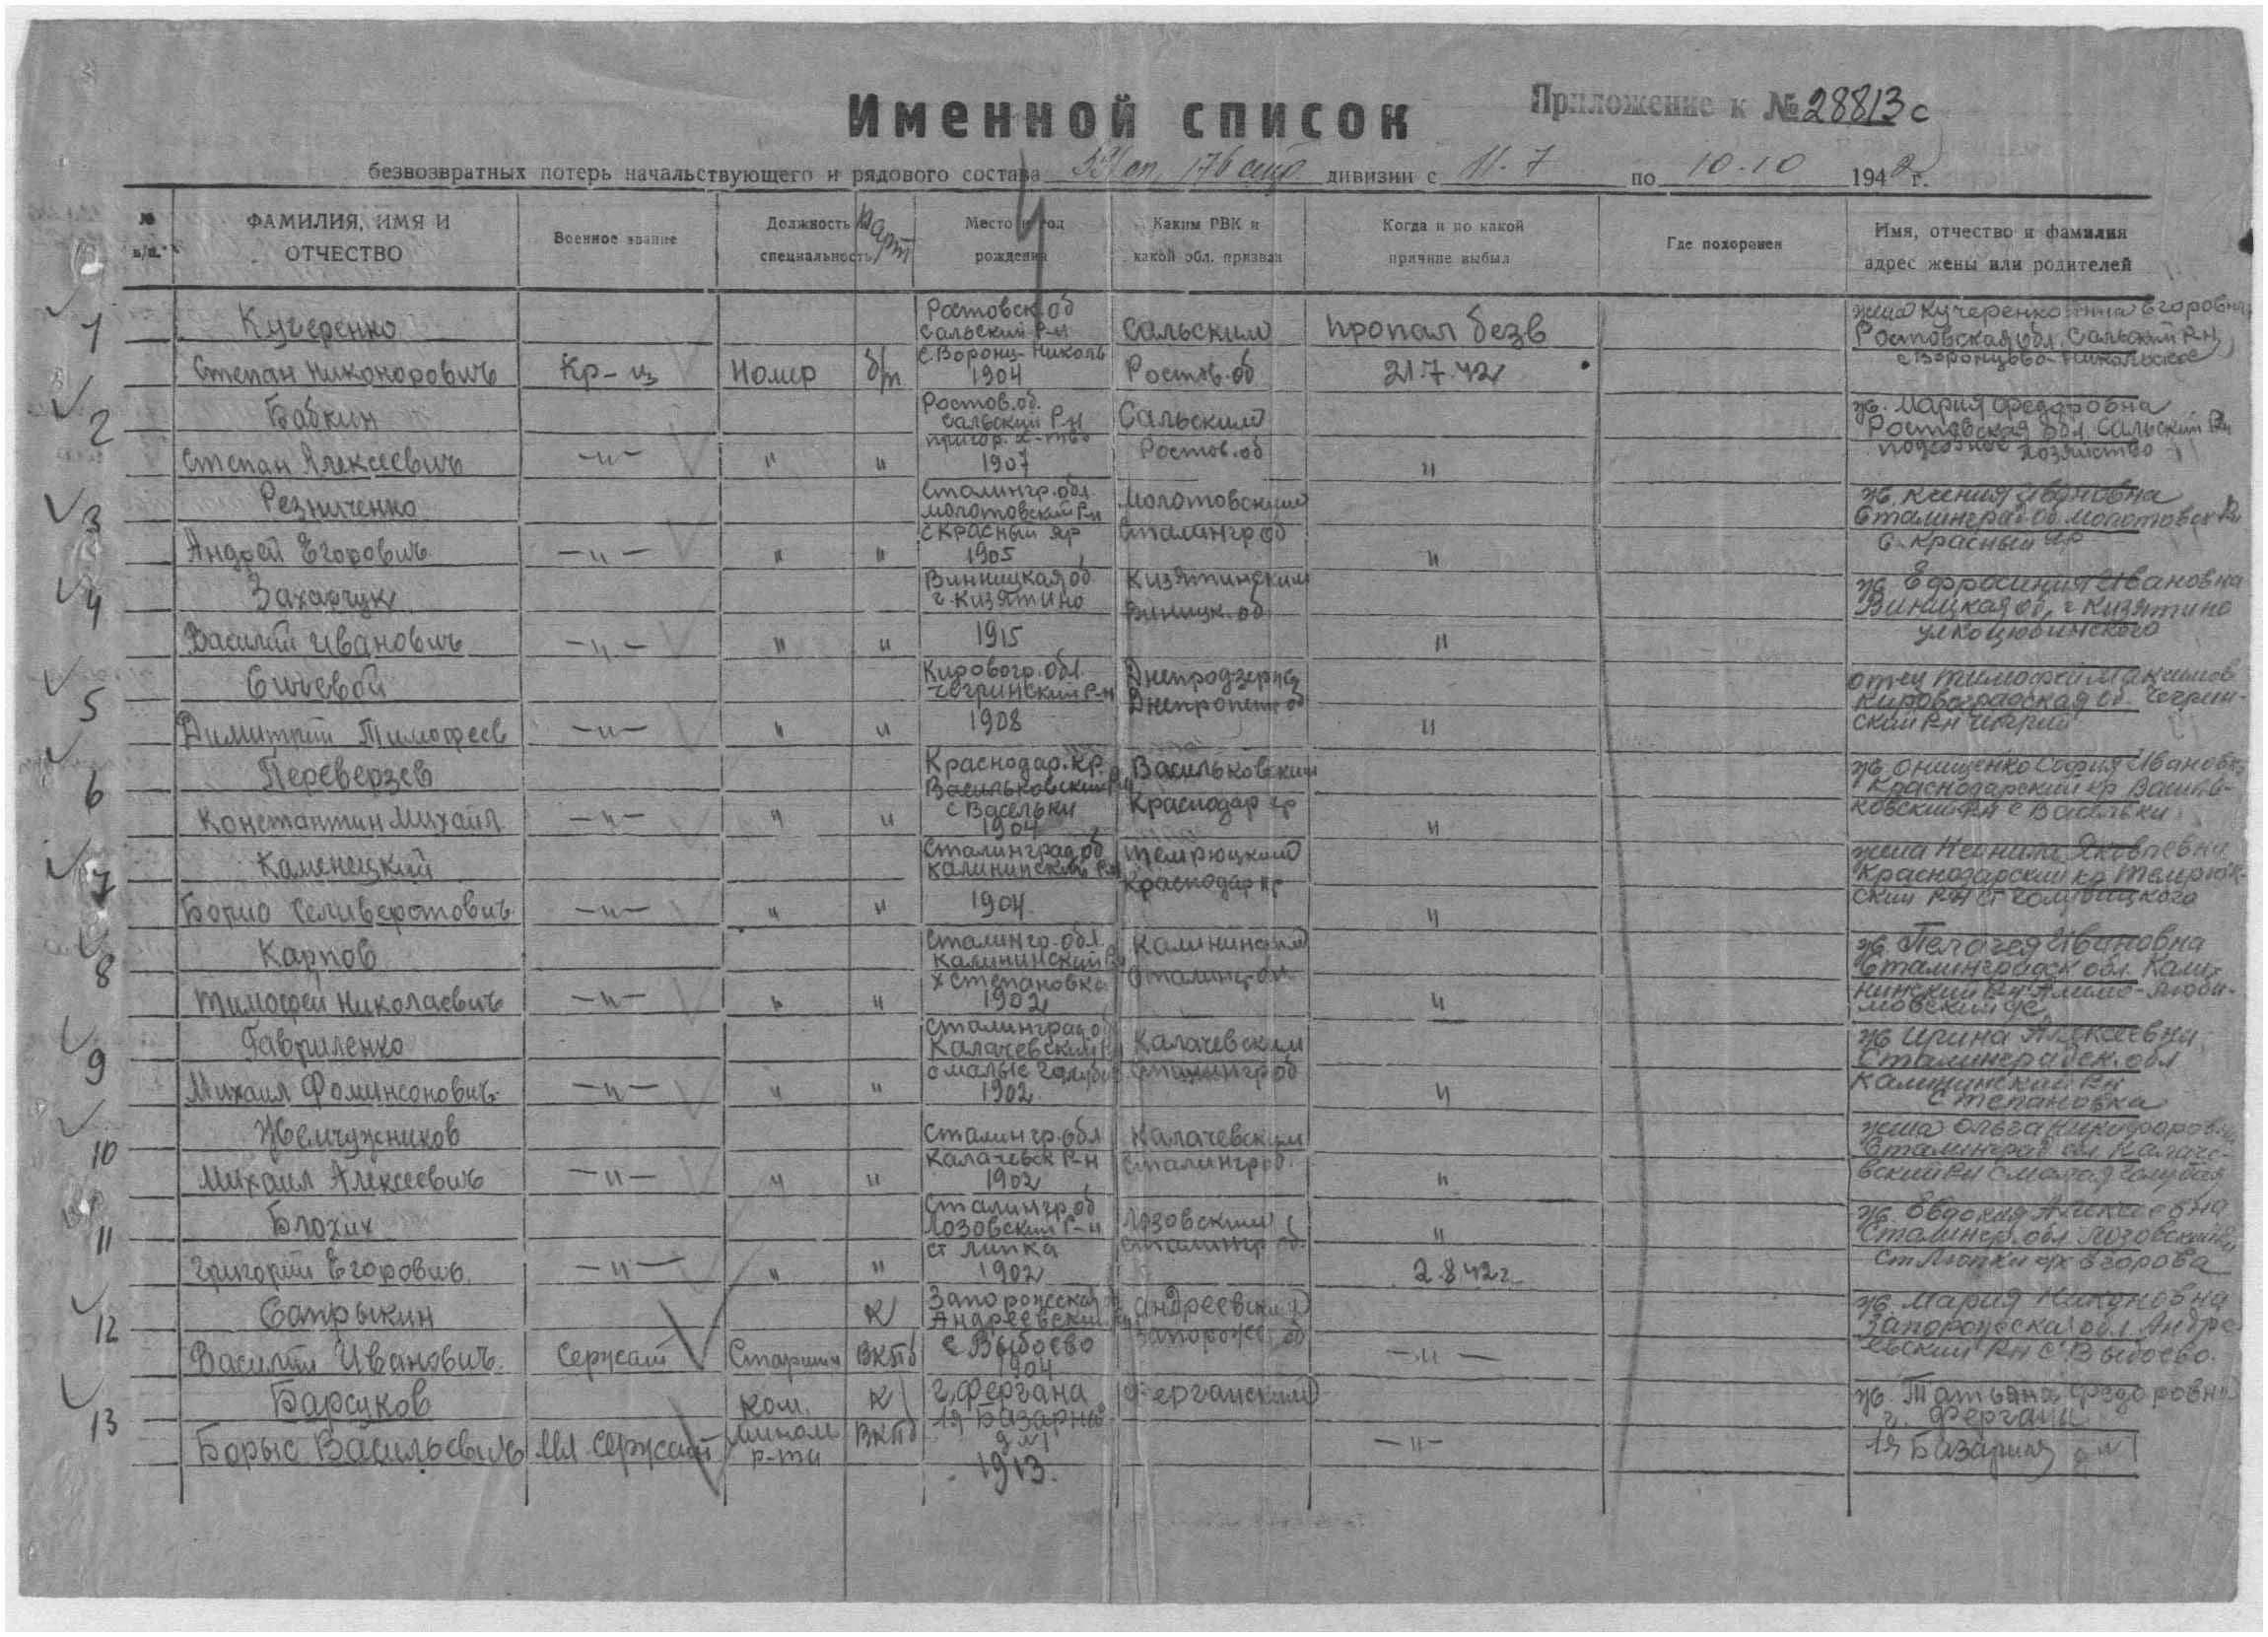 Именной список
Приложение к № 28813с
безвозвратных потерь начальствующего и рядового состава 176 дивизии с 11.7 по 10.10 1942 г.
№ п/п. ФАМИЛИЯ, ИМЯ И ОТЧЕСТВО Военное звание Должность специальность парт Место и год рождения Каким РВК и какой обл. призван Когда и по какой причине выбыл Где похоронен Имя, отчество и фамилия адрес жены или родителей
1 Кучеренко Ростовск. об Сальский Р-н Сальским пропал безв жена Кучеренко Анна Егоровна
Степан Никонорович Кр-ц Номер б/п с. Воронц-Николь 1904 Ростов.об 21.7.42 Ростовская обл, Сальский Р-Н с Воронцово-Никольское
2 Бабкин Ростов.об. Сальский Р-н Сальским ж. Мария Федоровна
Степан Алексеевич -"- " " пригор. х-тво 1907 Ростов.об " Ростовская обл. Сальский Р-н подсобное хозяйство
3 Резниченко Сталингр.обл. Молотовский Р-н Молотовским ж. Ксения Ивановна
Андрей Егорович -"- " " с Красный яр 1905 Сталингр об " Сталинград об Молотовск Р-н с. Красный яр
4 Захарчук Винницкая об. г. Кизятино Кизятинским ж. Ефросиния Ивановна
Василий Иванович -"- " " 1915 Виницк. об " Виницкая об, г Кизятино ул Коцюбинского
5 Сичевой Кировогр. обл. Чегринский Р-н Днепродзерж отец Тимофей Максимов
Димитрий Тимофеев -"- " " 1908 Днепропетр об " Кировоградская об. Чегрин- ский Р-н
6 Переверзев Краснодар. Кр. Васильковский Р-н Васильковским ж. Онищенко София Ивановна
Константин Михаил -"- " " с Васельки 1904 Краснодар кр " Краснодарский кр Василь- ковский Р-н с Васельки
7 Каменецкий Сталинград об Калининский Р-н Темрюцким жена Неонила Яковлевна
Борис Селиверстович -"- " " 1904 Краснодар кр " Краснодарский кр Темрюк- ский Р-Н ст Голубицкого
8 Карпов Сталингр. обл. Калининский Р-н Калининским ж. Пелагея Ивановна
Тимофей Николаевич -"- " " х Степановка 1902 " Сталинградск обл. Кали- нинский Р-н
9 Гавриленко Сталинград об Калачевский Р-н Калачевским ж Ирина Алексеевна
Михаил -"- " " с малые 1902 Сталингр об " Сталинградск. обл Калининский Р-н Степановка
10 Жемчужников Сталингр. обл Калачевским жена Ольга Никифоровна
Михаил Алексеевич -"- " " Калачевск Р-н 1902 Сталингр об. " Сталинград обл Калаче- вский Р-н с Малая Голубая
11 Блохин Сталингр об Лозовский Р-н Лозовским " ж. Евдокия Алексеевна
Григорий Егорович -"- " " ст Липка 1902 Сталингр об. 2.8.42г Сталингр. обл Лозовский Р-н
12 Сапрыкин К Запорожская об Андреевский Р-н Андреевским ж. Мария
Василий Иванович. Сержант Старшин ВКПб с Выбоево 1904 Запорожс. об -"- Запорожская обл Андре- евский Р-н с Выбоево.
13 Барсуков Ком. К г. Фергана Ферганским ж. Татьяна Федоровна
Борыс Васильевич Мл Сержант Мином р-ты ВКПб 1я Базарная д №1 1913. -"- г. Фергана 1я Базарная д №1